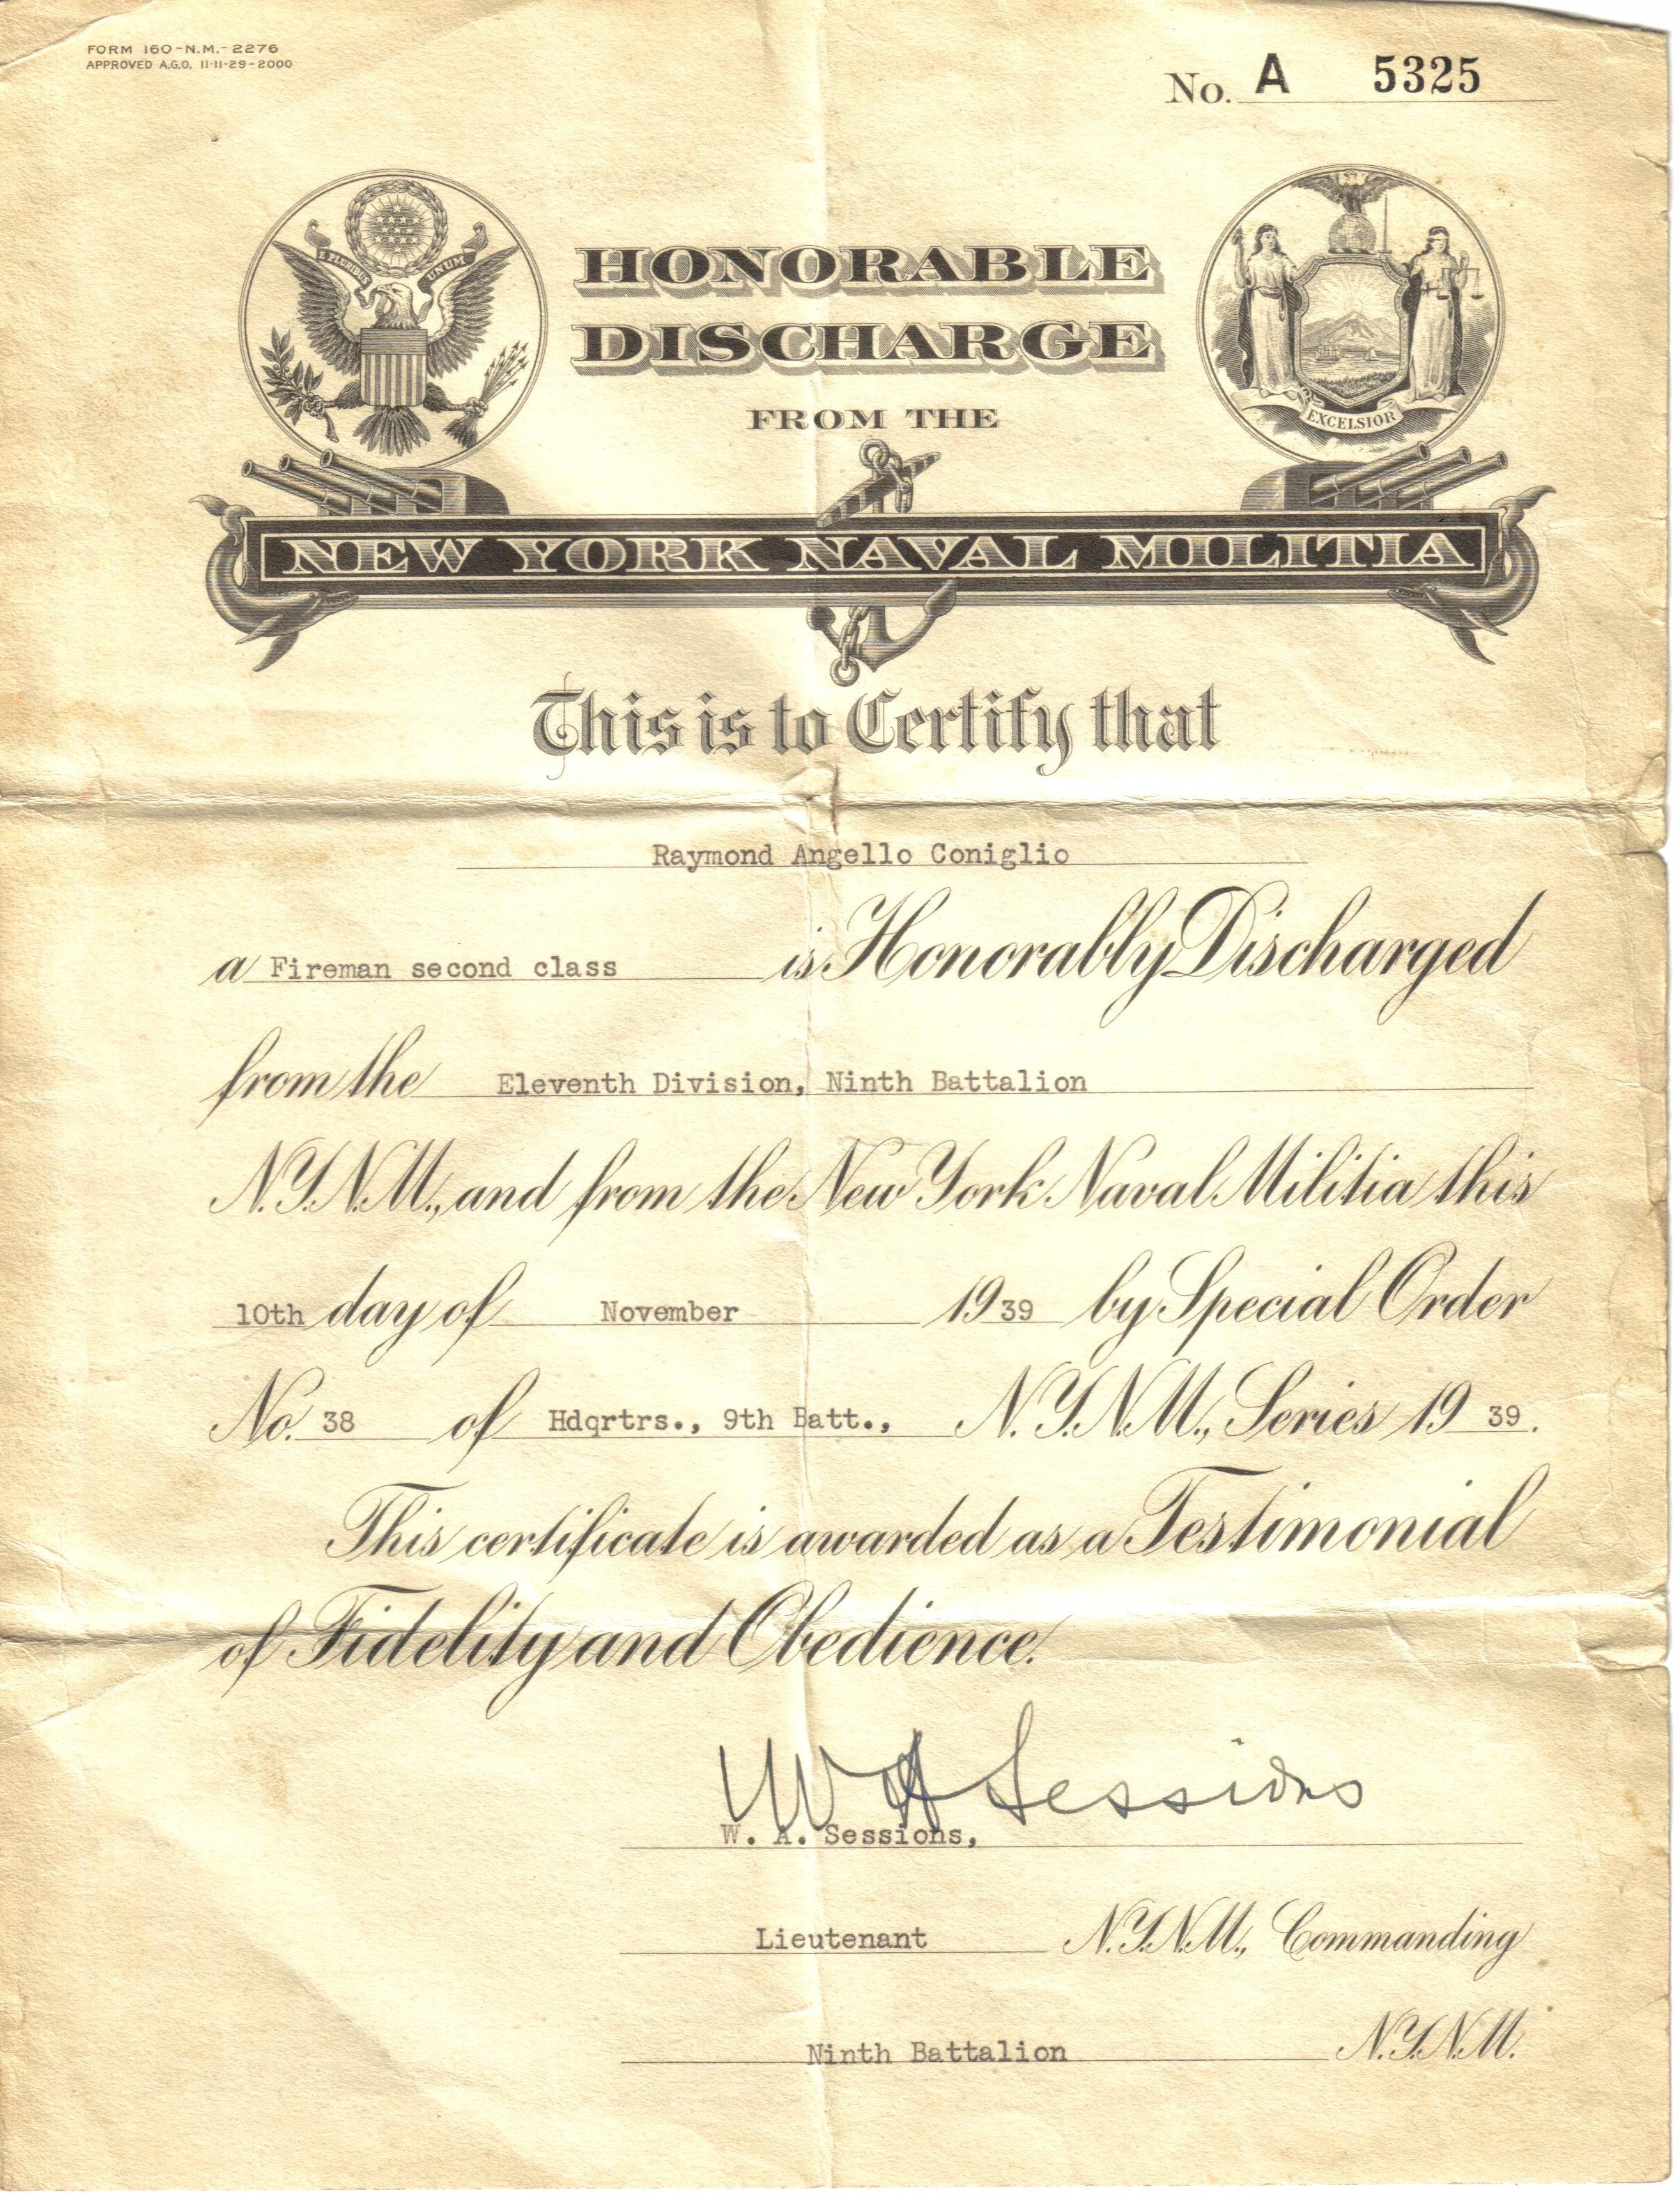 FORM 160-N.M.-2276
APPROVED A.G.O. 11-11-29-2000
No. A 5325
E PLURIBUS UNUM
HONORABLE
DISCHARGE
FROM THE
EXCELSIOR
NEW YORK NAVAL MILITIA
This is to Certify that
Raymond Angello Coniglio
a Fireman second class is Honorably Discharged
from the Eleventh Division, Ninth Battalion
N.Y.N.M., and from the New York Naval Militia this
10th day of November 1939 by Special Order
No. 38 of Hdqrtrs., 9th Batt., N.Y.N.M., Series 1939.
This certificate is awarded as a Testimonial
of Fidelity and Obedience.
W A Sessions
W. A. Sessions,
Lieutenant N.Y.N.M., Commanding
Ninth Battalion N.Y.N.M.